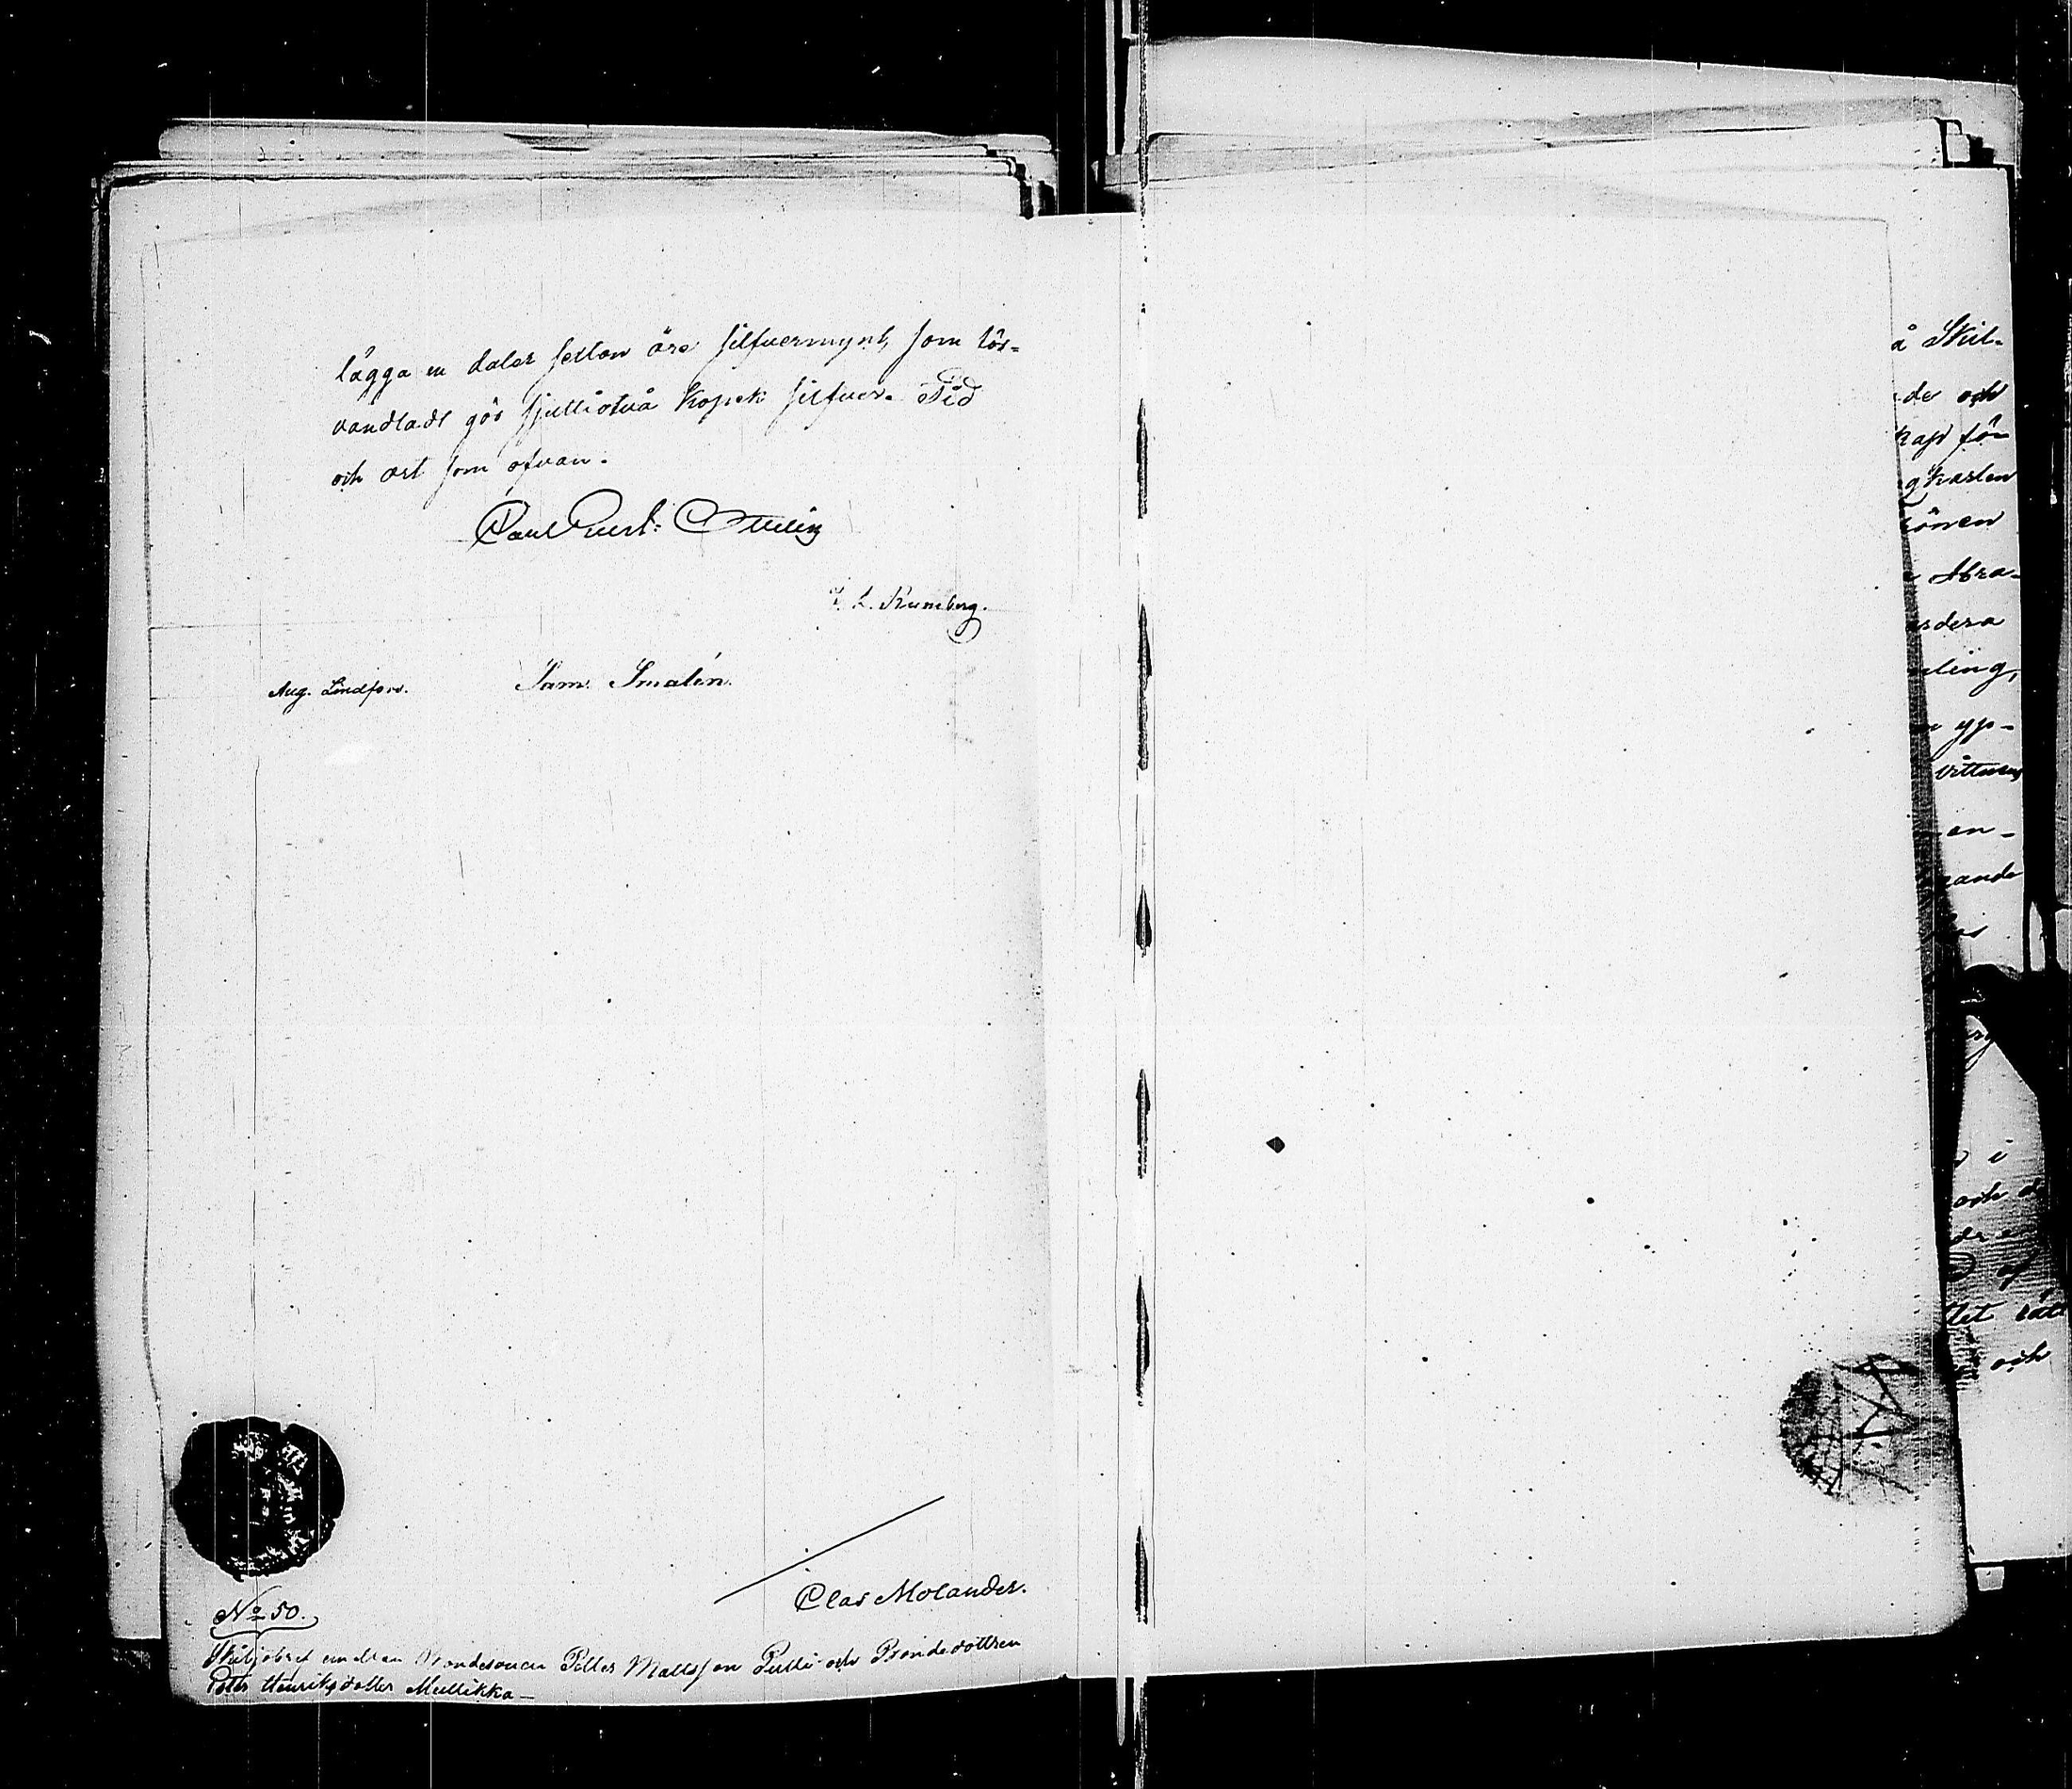 lägga en daler sexton öre silfvermynt, som för-
vandladt gör sjuttiotvå kopek silfver. Tid
och ort som ofvan.
L. Rumberg.
Aug. Lindfors. Sam. Smalén.
Clas Molander.
No 50.
Skiljobref emellan Bondesonen Petter Mattsson Pulli och Bondedottren
Henriksdotter Mullikka
å Skil-
de och
kap för
kasten
önen
Abra-
dera
ling,
yp-
vittnesg
an-
ande
i
och
af
tet rätt
och